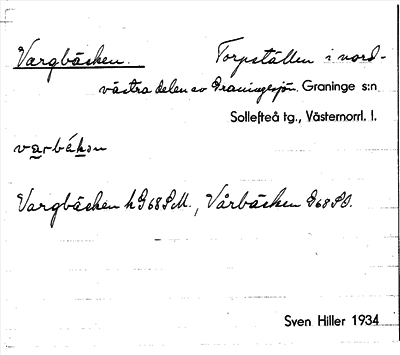 Vargbäcken. Torpställen i nord-
västra delen av Graningesjön. Graninge s:n
Sollefteå tg., Västernorrl. l.
varbékən
Vargbäcken h G68SM., Vårbäcken
Sven Hiller 1934